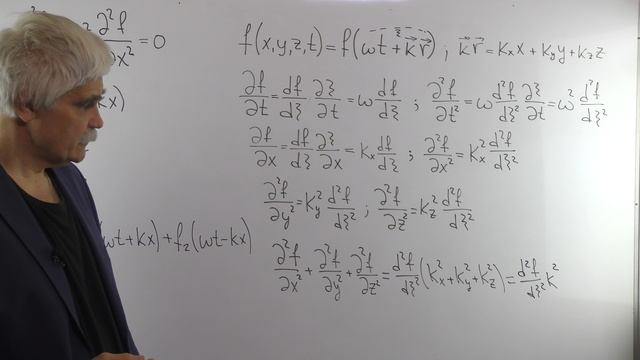 ∂²f/∂x² = 0
kx)
(ωt+kx)+f₂(ωt-kx)
f(x,y,z,t)=f(ωt+k⃗r⃗) ; k⃗r⃗=kₓx+k_y y+k_z z
ξ
∂f/∂t=df/dξ·∂ξ/∂t=ω df/dξ ; ∂²f/∂t²=ω d²f/dξ² ∂ξ/∂t=ω² d²f/dξ²
∂f/∂x=df/dξ·∂ξ/∂x=kₓ df/dξ ; ∂²f/∂x²=kₓ² d²f/dξ²
∂²f/∂y²=k_y² d²f/dξ² ; ∂²f/∂z²=k_z² d²f/dξ²
∂²f/∂x²+∂²f/∂y²+∂²f/∂z²=d²f/dξ²(kₓ²+k_y²+k_z²)=d²f/dξ² k²